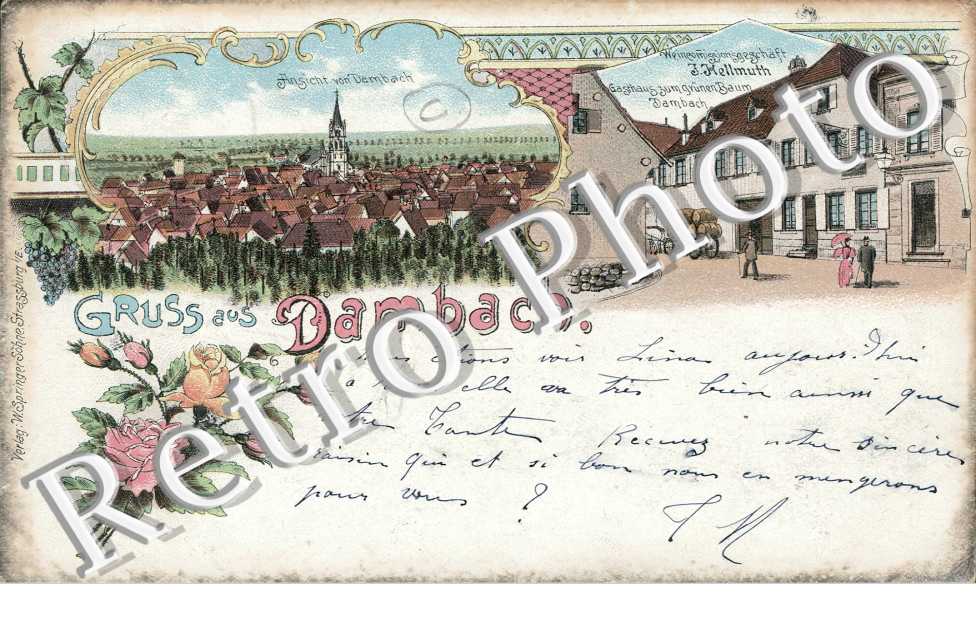 Ansicht von Dambach
Weincomissionsgeschäft
J. Hellmuth
Gasthaus zum grünen Baum
Dambach
©
Retro Photo
Gruss aus Dambach.
Verlag: W. Springer Söhne Strassburg i/E
étions voir Lina aujourd'hui
elle va très bien ainsi que
tre Tante Recevez notre sincère
raisin qui et si bon nous en mengerons
pour vous ?